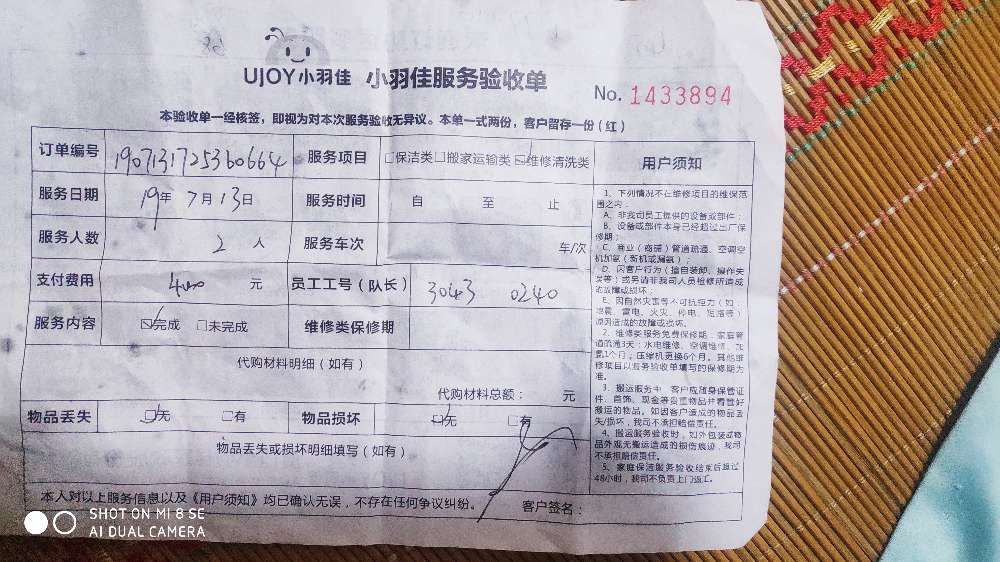 UJOY小羽佳 小羽佳服务验收单
No. 1433894
本验收单一经核签，即视为对本次服务验收无异议。本单一式两份，客户留存一份（红）
订单编号 190713172536066​4 服务项目 □保洁类□搬家运输类☑维修清洗类
服务日期 19年 7月13日 服务时间 自 至 止
服务人数 2 人 服务车次 车/次
支付费用 400 元 员工工号（队长） 3043 0240
服务内容 ☑完成 □未完成 维修类保修期
代购材料明细（如有）
代购材料总额： 元
物品丢失 ☑无 □有 物品损坏 ☑无 □有
物品丢失或损坏明细填写（如有）
本人对以上服务信息以及《用户须知》均已确认无误，不存在任何争议纠纷。 客户签名：
用户须知
1、下列情况不在维修项目的维保范
围之内：
A、非我司员工提供的设备或部件；
B、设备或部件本身已经超过出厂保
修期；
C、商业（商铺）管道疏通、空调空
机加氨（新机或漏氨）；
D、因客户行为（擅自装卸、操作失
误等）或另请非我司人员检修所造成
的故障或损坏；
E、因自然灾害等不可抗拒力（如：
地震、雷电、火灾、停电、短路等）
原因造成的故障或损坏。
2、维修类服务免费保修期：家庭管
道疏通3天；水电维修、空调维修、加
氨1个月；压缩机更换6个月。其他维
修项目以服务验收单填写的保修期为
准。
3、搬运服务中，客户应随身保管证
件、首饰、现金等贵重物品并看管好
搬运的物品。如因客户造成的物品丢
失/损坏，我司不承担赔偿责任。
4、搬运服务验收时，如外包装或物
品外观无搬运造成的损伤痕迹，我司
不承担赔偿责任。
5、家庭保洁服务验收结束后超过
48小时，我司不负责上门返工。
SHOT ON MI 8 SE
AI DUAL CAMERA